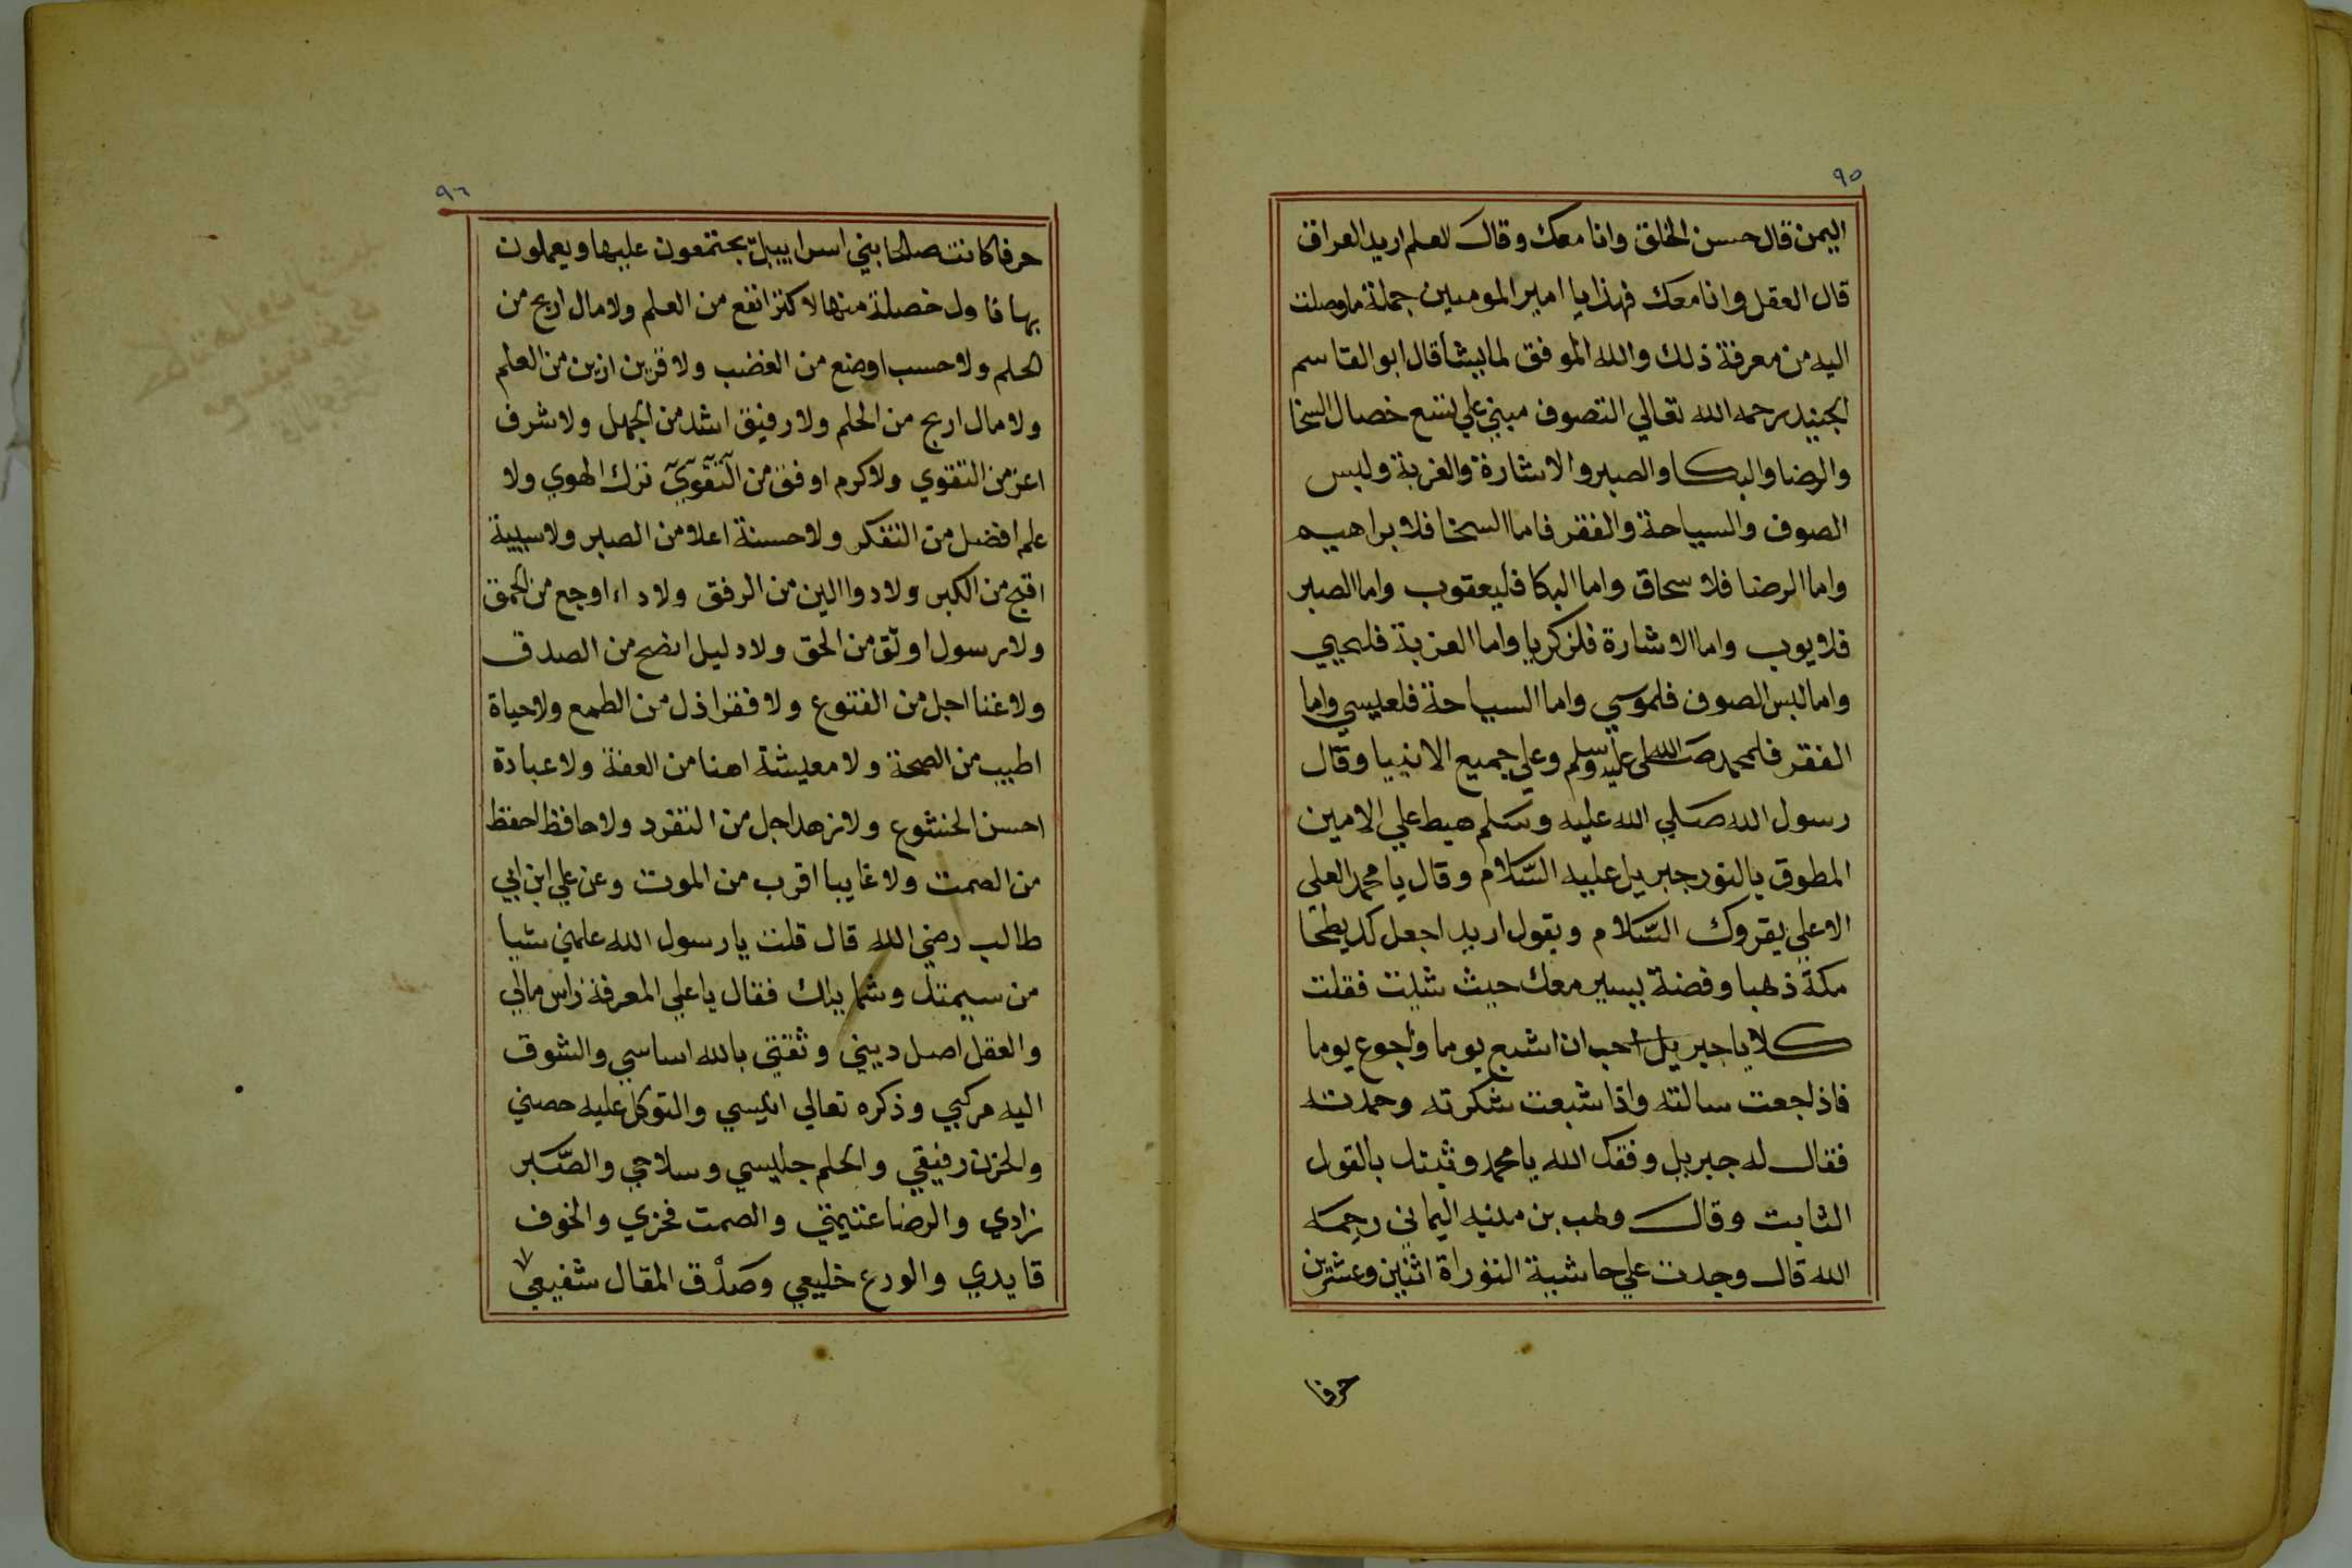 ٩٥
اليمن قال حسن الخلق وانا معك وقال العلم اريد العراق
قال العقل وانا معك فهذا يا امير المومنين جملة ما وصلت
اليه من معرفة ذلك والله الموفق لما يشا قال ابو القاسم
الجنيد رحمه الله تعالي التصوف مبني علي تسع خصال السخا
والرضا والبكا والصبر والاشارة والغربة ولبس
الصوف والسياحة والفقر فاما السخا فلابراهيم
واما الرضا فلاسحاق واما البكا فليعقوب واما الصبر
فلايوب واما الاشارة فلزكريا واما الغربة فليحيي
واما لبس الصوف فلموسي واما السياحة فلعيسي واما
الفقر فلمحمد صلى الله عليه وسلم وعلي جميع الانبيا وقال
رسول الله صلي الله عليه وسلم هبط علي الامين
المطوق بالنور جبريل عليه السلام وقال يا محمد العلي
الاعلي يقروك السلام ويقول اريد اجعل لك بطحا
مكة ذهبا وفضة يسير معك حيث شيت فقلت
كلا يا جبريل احب ان اشبع يوما واجوع يوما
فاذا جعت سالته واذا شبعت شكرته وحمدته
فقال له جبريل وفقك الله يا محمد وثبتك بالقول
الثابت وقال وهب بن منبه اليماني رحمه
الله قال وجدت علي حاشية التوراة اثنين وعشرين
حرفا
٩٦
حرفا كانت صلحا بني اسراييل يجتمعون عليها ويعملون
بها فاول خصلة منها لا كنز انفع من العلم ولا مال اربح من
الحلم ولا حسب اوضع من الغضب ولا قرين ازين من العلم
ولا مال اربح من الحلم ولا رفيق اشد من الجهل ولا شرف
اعز من التقوي ولا كرم اوفق من التقوي ترك الهوي ولا
علم افضل من التفكر ولا حسنة اعلا من الصبر ولا سيية
اقبح من الكبر ولا دوا الين من الرفق ولا داء اوجع من الحمق
ولا رسول اوثق من الحق ولا دليل انضح من الصدق
ولا غنا اجل من القنوع ولا فقر اذل من الطمع ولا حياة
اطيب من الصحة ولا معيشة اهنا من العفة ولا عبادة
احسن الخشوع ولا زهد اجل من التفرد ولا حافظ احفظ
من الصمت ولا غايبا اقرب من الموت وعن علي ابن ابي
طالب رضي الله قال قلت يا رسول الله علمني شيا
من سيمتك وشمايلك فقال يا علي المعرفة راس مالي
والعقل اصل ديني وثقتي بالله اساسي والشوق
اليه مركبي وذكره تعالي انيسي والتوكل عليه حصني
والحزن رفيقي والحلم جليسي وسلاحي والصبر
زادي والرضا غنيمتي والصمت فخري والخوف
قايدي والورع خليعي وصدق المقال شفيعي